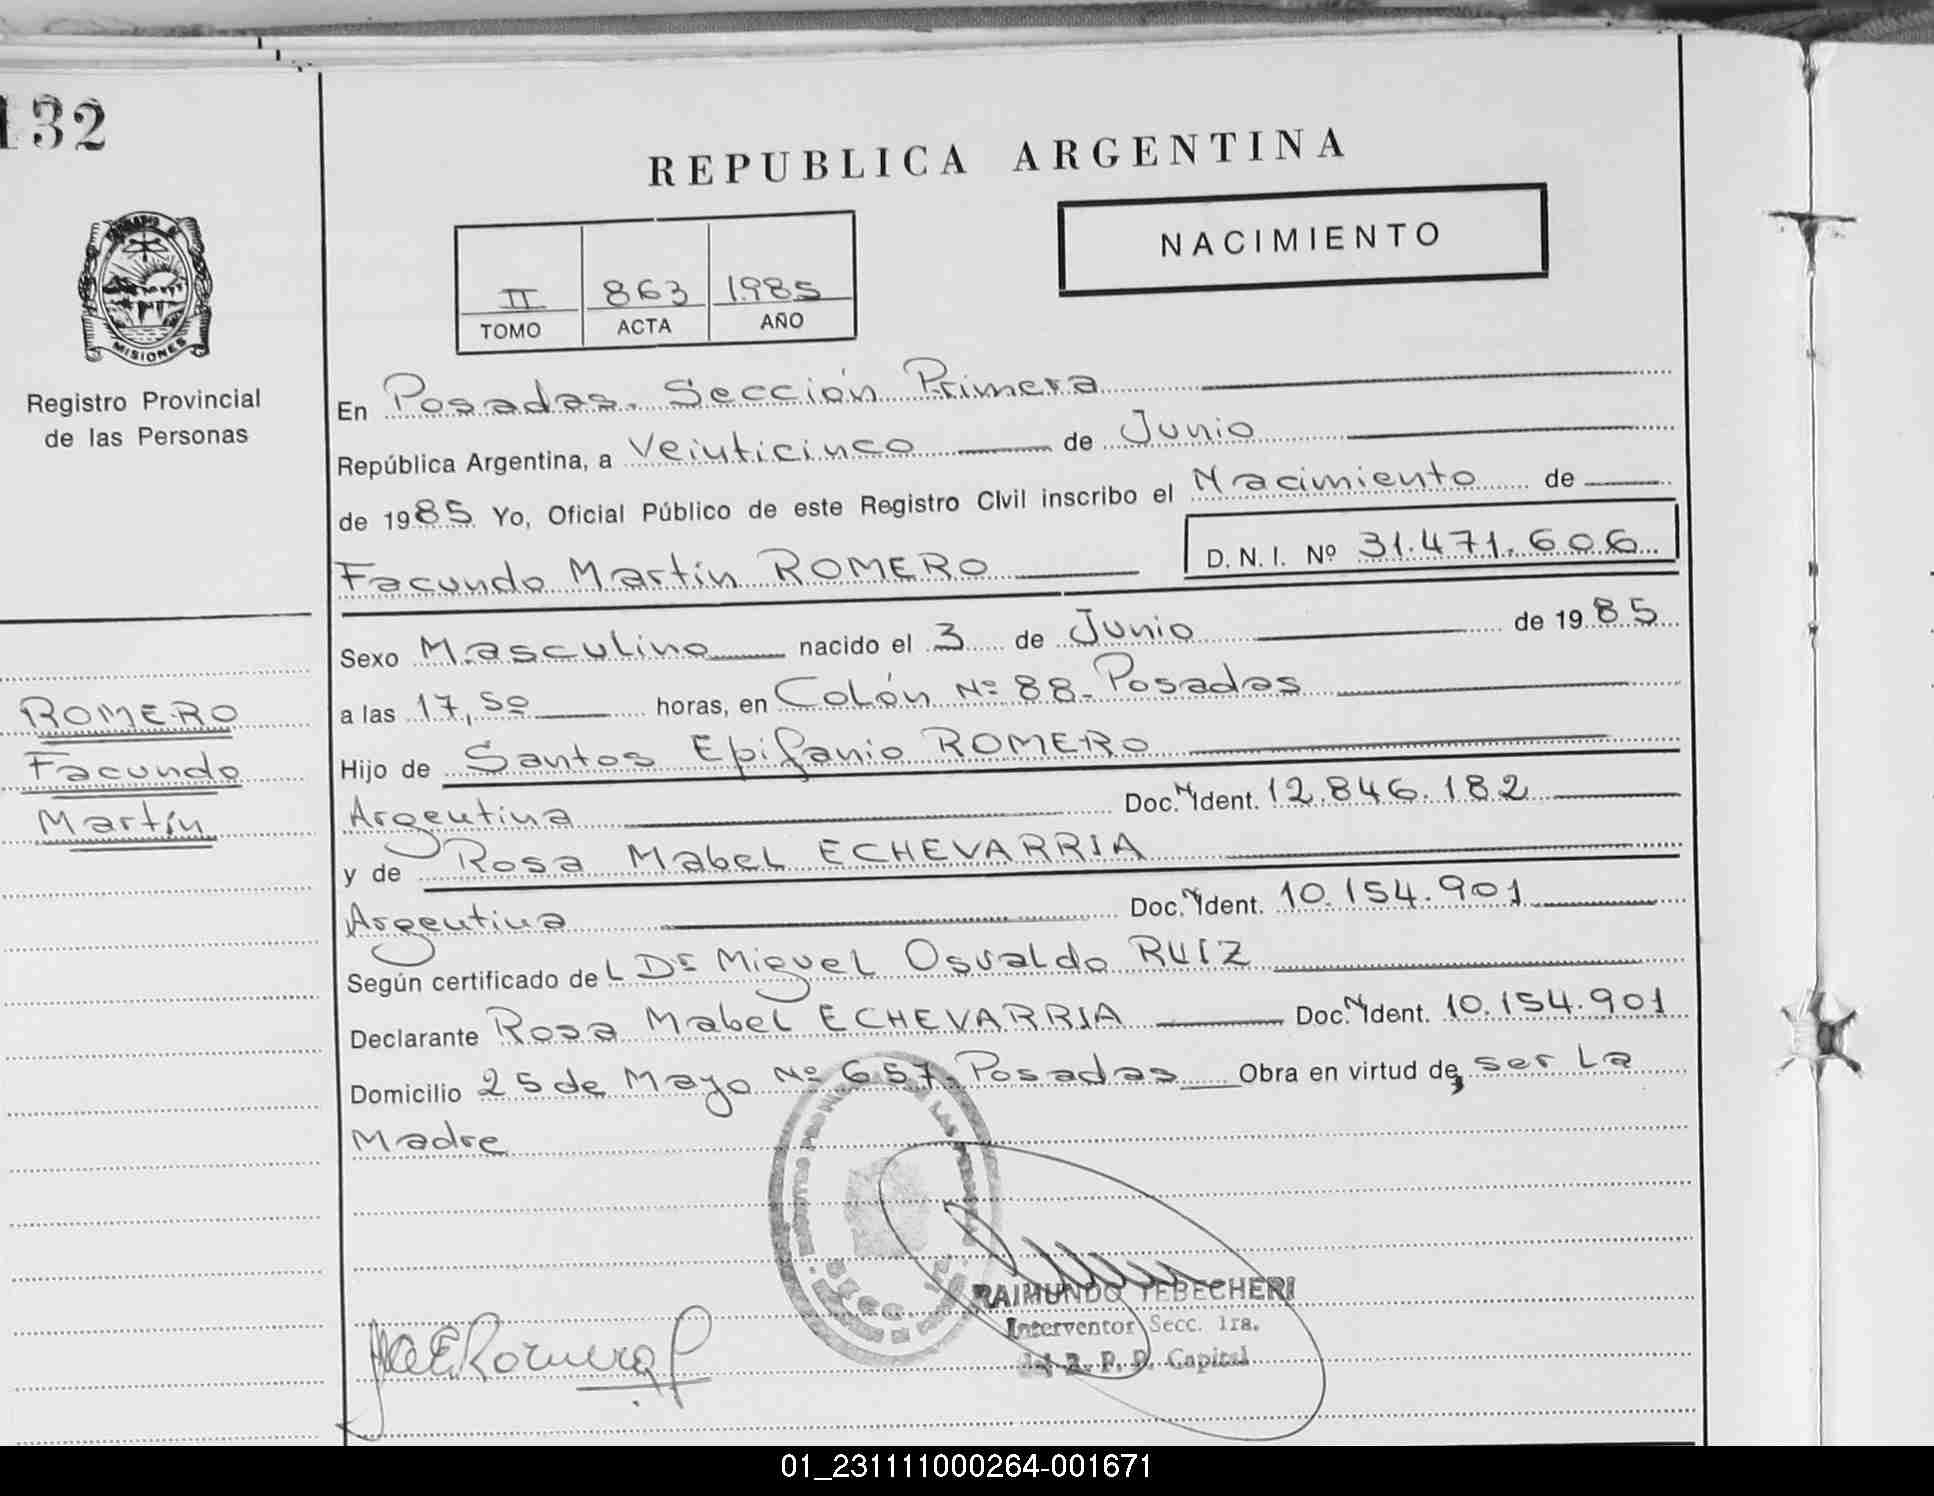 132
MISIONES
Registro Provincial
de las Personas
ROMERO
Facundo
Martín
REPUBLICA ARGENTINA
NACIMIENTO
II 863 1985
TOMO ACTA AÑO
En Posadas. Sección Primera
República Argentina, a Veinticinco de Junio
de 1985 Yo, Oficial Público de este Registro Civil inscribo el Nacimiento de
Facundo Martín ROMERO D.N.I. Nº 31.471.606
Sexo Masculino nacido el 3 de Junio de 1985
a las 17,50 horas, en Colón Nº 88. Posadas
Hijo de Santos Epifanio ROMERO
Argentina Doc. N Ident. 12.846.182
y de Rosa Mabel ECHEVARRIA
Argentina Doc. N Ident. 10.154.901
Según certificado del Dr Miguel Osvaldo RUIZ
Declarante Rosa Mabel ECHEVARRIA Doc. N Ident. 10.154.901
Domicilio 25 de Mayo Nº 657. Posadas Obra en virtud de, ser La
Madre
RAIMUNDO TEBECHERI
Interventor Secc. 1ra.
R. P. P. Capital
01_231111000264-001671